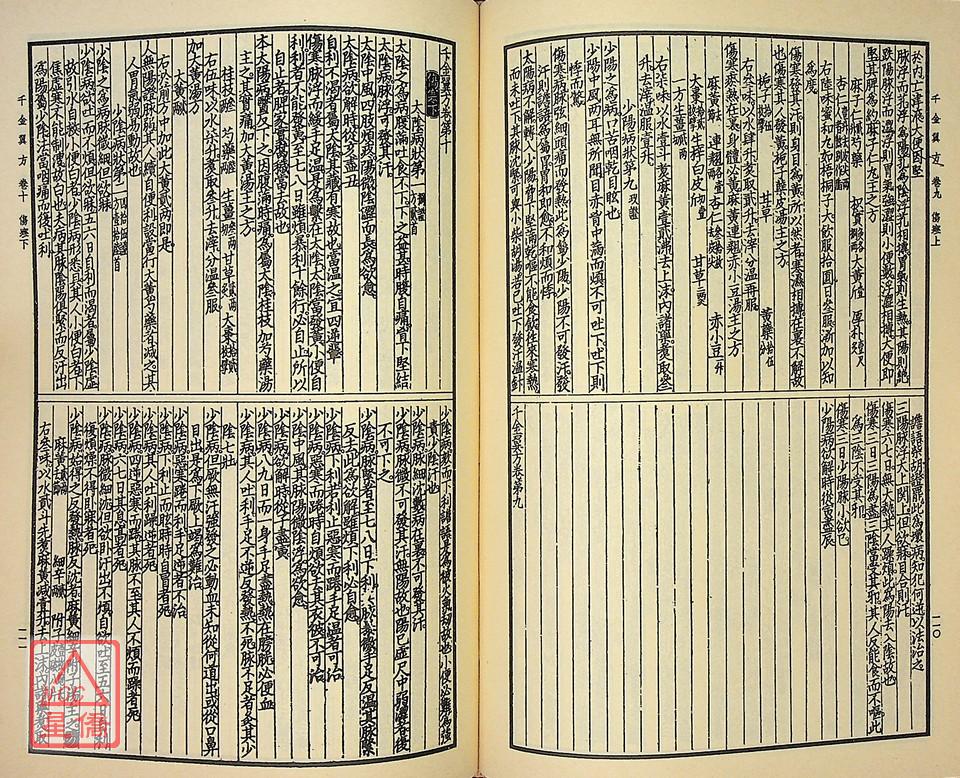 千金翼方 卷九 傷寒上
一二〇
脉浮而芤浮為陽芤為陰浮芤相摶胃氣則生熱其陽則絶
跌陽脉浮而濇浮則胃氣強濇則小便數浮濇相摶大便即
堅其脾為約麻子仁丸主之方
為度
傷寒發其汗則身目為黃所以然者寒濕相摶在裏不解故
也傷寒其人發黃梔子蘗皮湯主之方
甘草
右叁味以水肆升煑取貳升去滓分溫再服
傷寒瘀熱在裏身體必黃麻黃連翹赤小豆湯主之方
一方生薑
升去滓溫服壹升
少陽病狀第九
少陽之為病口苦咽乾目眩也
少陽中風兩耳無所聞目赤胷中滿而煩不可吐下吐下則
悸而驚
傷寒病脉弦細頭痛而發熱此為屬少陽少陽不可發汗發
汗則讝語為屬胃胃和即愈不和煩而悸
太陽病不解轉入少陽脅下堅滿乾嘔不能食飲往來寒熱
而未吐下其脉沈緊可與小柴胡湯若已吐下發汗溫針
讝語柴胡證罷此為壞病知犯何逆以法治之
三陽脉浮大上關上但欲寐目合則汗
傷寒六七日無大熱其人躁煩此為陽去入陰故也
傷寒三日三陽為盡三陰當受其邪其人反能食而不嘔此
為三陰不受其邪
傷寒三日少陽脉小欲已
少陽病欲解時從寅盡辰
千金翼方卷第九
千金翼方卷第十
傷寒下
太陰病狀第一
太陰之為病腹滿吐食不下下之益甚時腹自痛胷下堅結
太陰病脉浮可發其汗
太陰中風四肢煩疼陽微陰濇而長為欲愈
太陰病欲解時從亥盡丑
自利不渴者屬太陰其藏有寒故也當溫之宜四逆輩
傷寒脉浮而緩手足溫是為繫在太陰太陰當發黃小便自
利利者不能發黃至七八日雖煩暴利十餘行必自止所以
自止者脾家實腐穢當去故也
本太陽病醫反下之因腹滿時痛為屬太陰桂枝加芍藥湯
主之其實痛加大黃湯主之方
右伍味以水柒升煑取叁升去滓分溫叁服
加大黃湯方
右於前方中加此大黃貳兩即是
人無陽證脉弱其人續自便利設當行大黃芍藥者減之其
人胃氣弱易動故也
少陰病狀第二
少陰之為病脉微細但欲寐
少陰病欲吐而不煩但欲寐五六日自利而渴者屬少陰虛
故引水自救小便白者少陰病形悉具其人小便白者下
焦虛寒不能制溲故白也夫病其脉陰陽俱緊而反汗出
為陽屬少陰法當咽痛而復吐利
千金翼方 卷十 傷寒下
一二一
少陰病脉細沈數病在裏不可發其汗
少陰病脉微不可發其汗無陽故也陽已虛尺中弱濇者復
不可下之
少陰病脉緊者至七八日下利其脉暴微手足反溫其脉緊
反去此為欲解雖煩下利必自愈
少陰病下利若利止惡寒而踡手足溫者可治
少陰病惡寒而踡時自煩欲去其衣被不可治
少陰中風其脉陽微陰浮為欲愈
少陰病欲解時從子盡寅
少陰病八九日而一身手足盡熱熱在膀胱必便血
少陰病其人吐利手足不逆反發熱不死脉不足者灸其少
陰七壯
少陰病但厥無汗強發之必動血未知從何道出或從口鼻
目出是為下厥上竭為難治
少陰病惡寒踡而利手足逆者不治
少陰病其人吐利躁逆者死
少陰病下利止而眩時時自冒者死
少陰病四逆惡寒而踡其脉不至其人不煩而躁者死
少陰病六七日其息高者死
少陰病脉微細沈但欲卧汗出不煩自欲吐至五六日自利
復煩燥不得卧寐者死
少陰病始得之反發熱脉反沈者麻黃細辛附子湯主之方
右叁味以水貳斗先煑麻黃減壹升去上沫內諸藥煑取
MCS
星僑